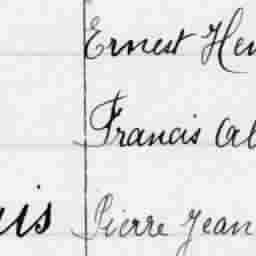 Ernest Hen
Francis Al
uis Pierre Jean